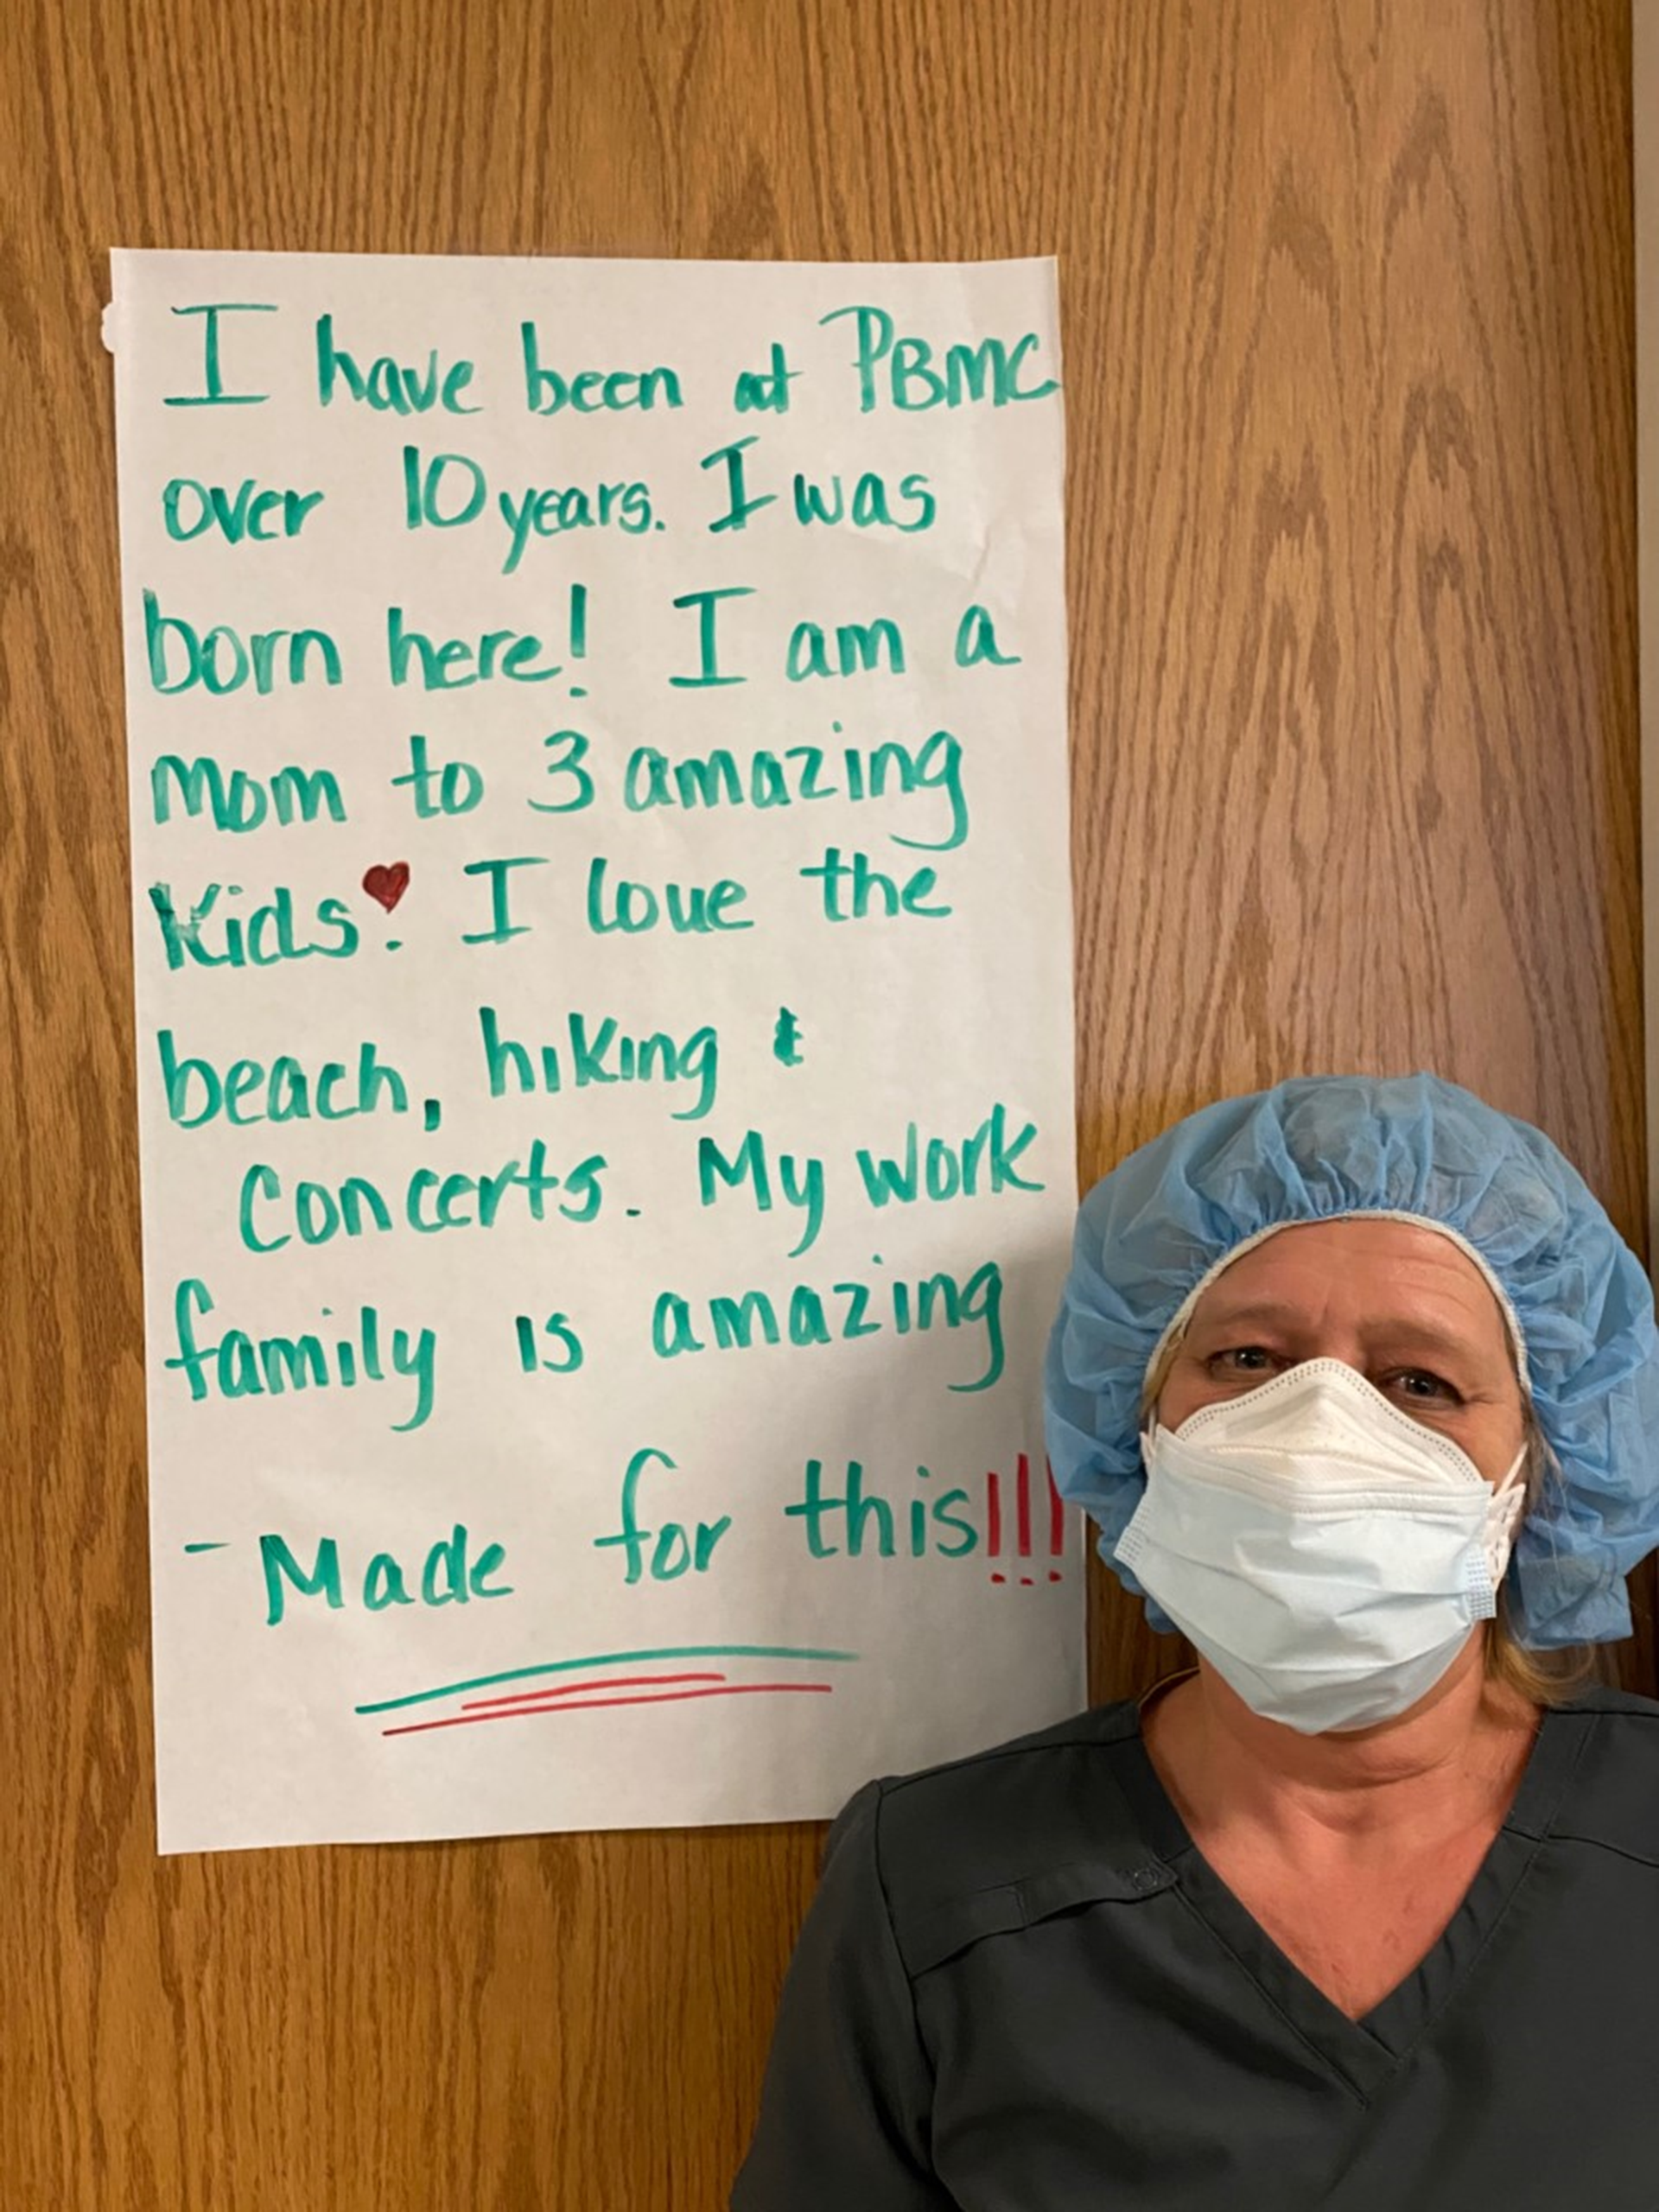 I have been at PBMC
over 10 years. I was
born here! I am a
mom to 3 amazing
kids♥. I love the
beach, hiking &
concerts. My work
family is amazing
- Made for this!!!